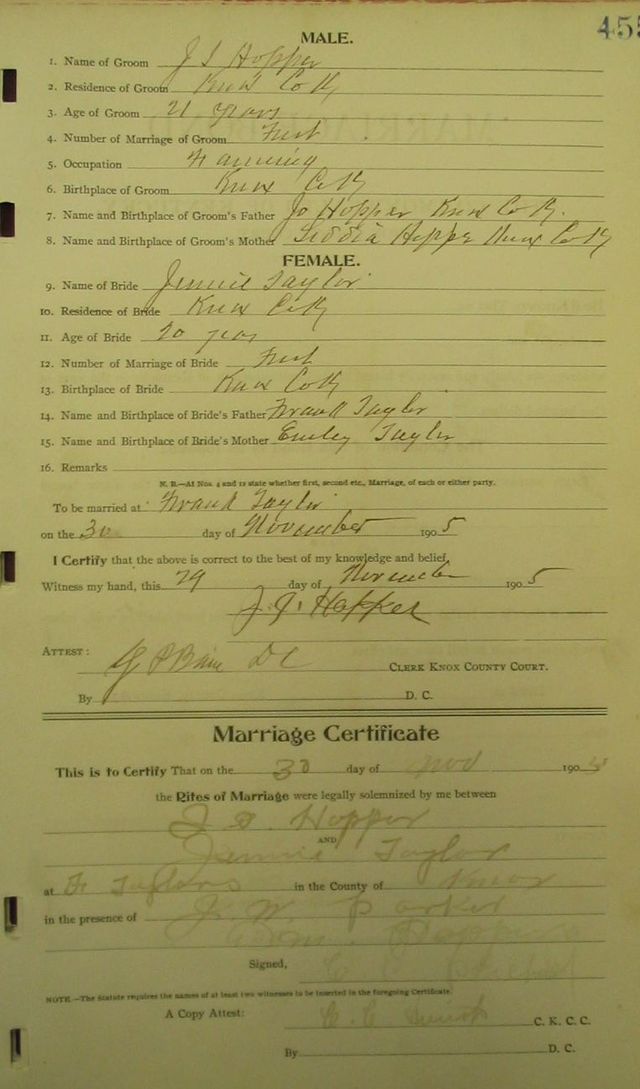 455
MALE.
1. Name of Groom J S Hopper
2. Residence of Groom Knox Co Ky
3. Age of Groom 21 years
4. Number of Marriage of Groom First
5. Occupation Farming
6. Birthplace of Groom Knox Co Ky
7. Name and Birthplace of Groom's Father Jo Hopper Knox Co Ky.
8. Name and Birthplace of Groom's Mother Hopper Knox Co Ky
FEMALE.
9. Name of Bride Jennie Taylor
10. Residence of Bride Knox Co Ky
11. Age of Bride 20 years
12. Number of Marriage of Bride First
13. Birthplace of Bride Knox Co Ky
14. Name and Birthplace of Bride's Father Frank Taylor
15. Name and Birthplace of Bride's Mother Emley Taylor
16. Remarks
N. B.—At Nos. 4 and 12 state whether first, second etc., Marriage, of each or either party.
To be married at Frank Taylor
on the 30 day of November 1905
I Certify that the above is correct to the best of my knowledge and belief.
Witness my hand, this 29 day of November 1905
Hopper
ATTEST: D C CLERK KNOX COUNTY COURT.
By D. C.
Marriage Certificate
This is to Certify That on the 30 day of Nov 1905
the Rites of Marriage were legally solemnized by me between
J S. Hopper
AND
Jennie Taylor
at Fr Taylors in the County of Knox
in the presence of J. W. Parker
Wm. Hopper
Signed,
NOTE.—The Statute requires the names of at least two witnesses to be inserted in the foregoing Certificate.
A Copy Attest: C. K. C. C.
By D. C.